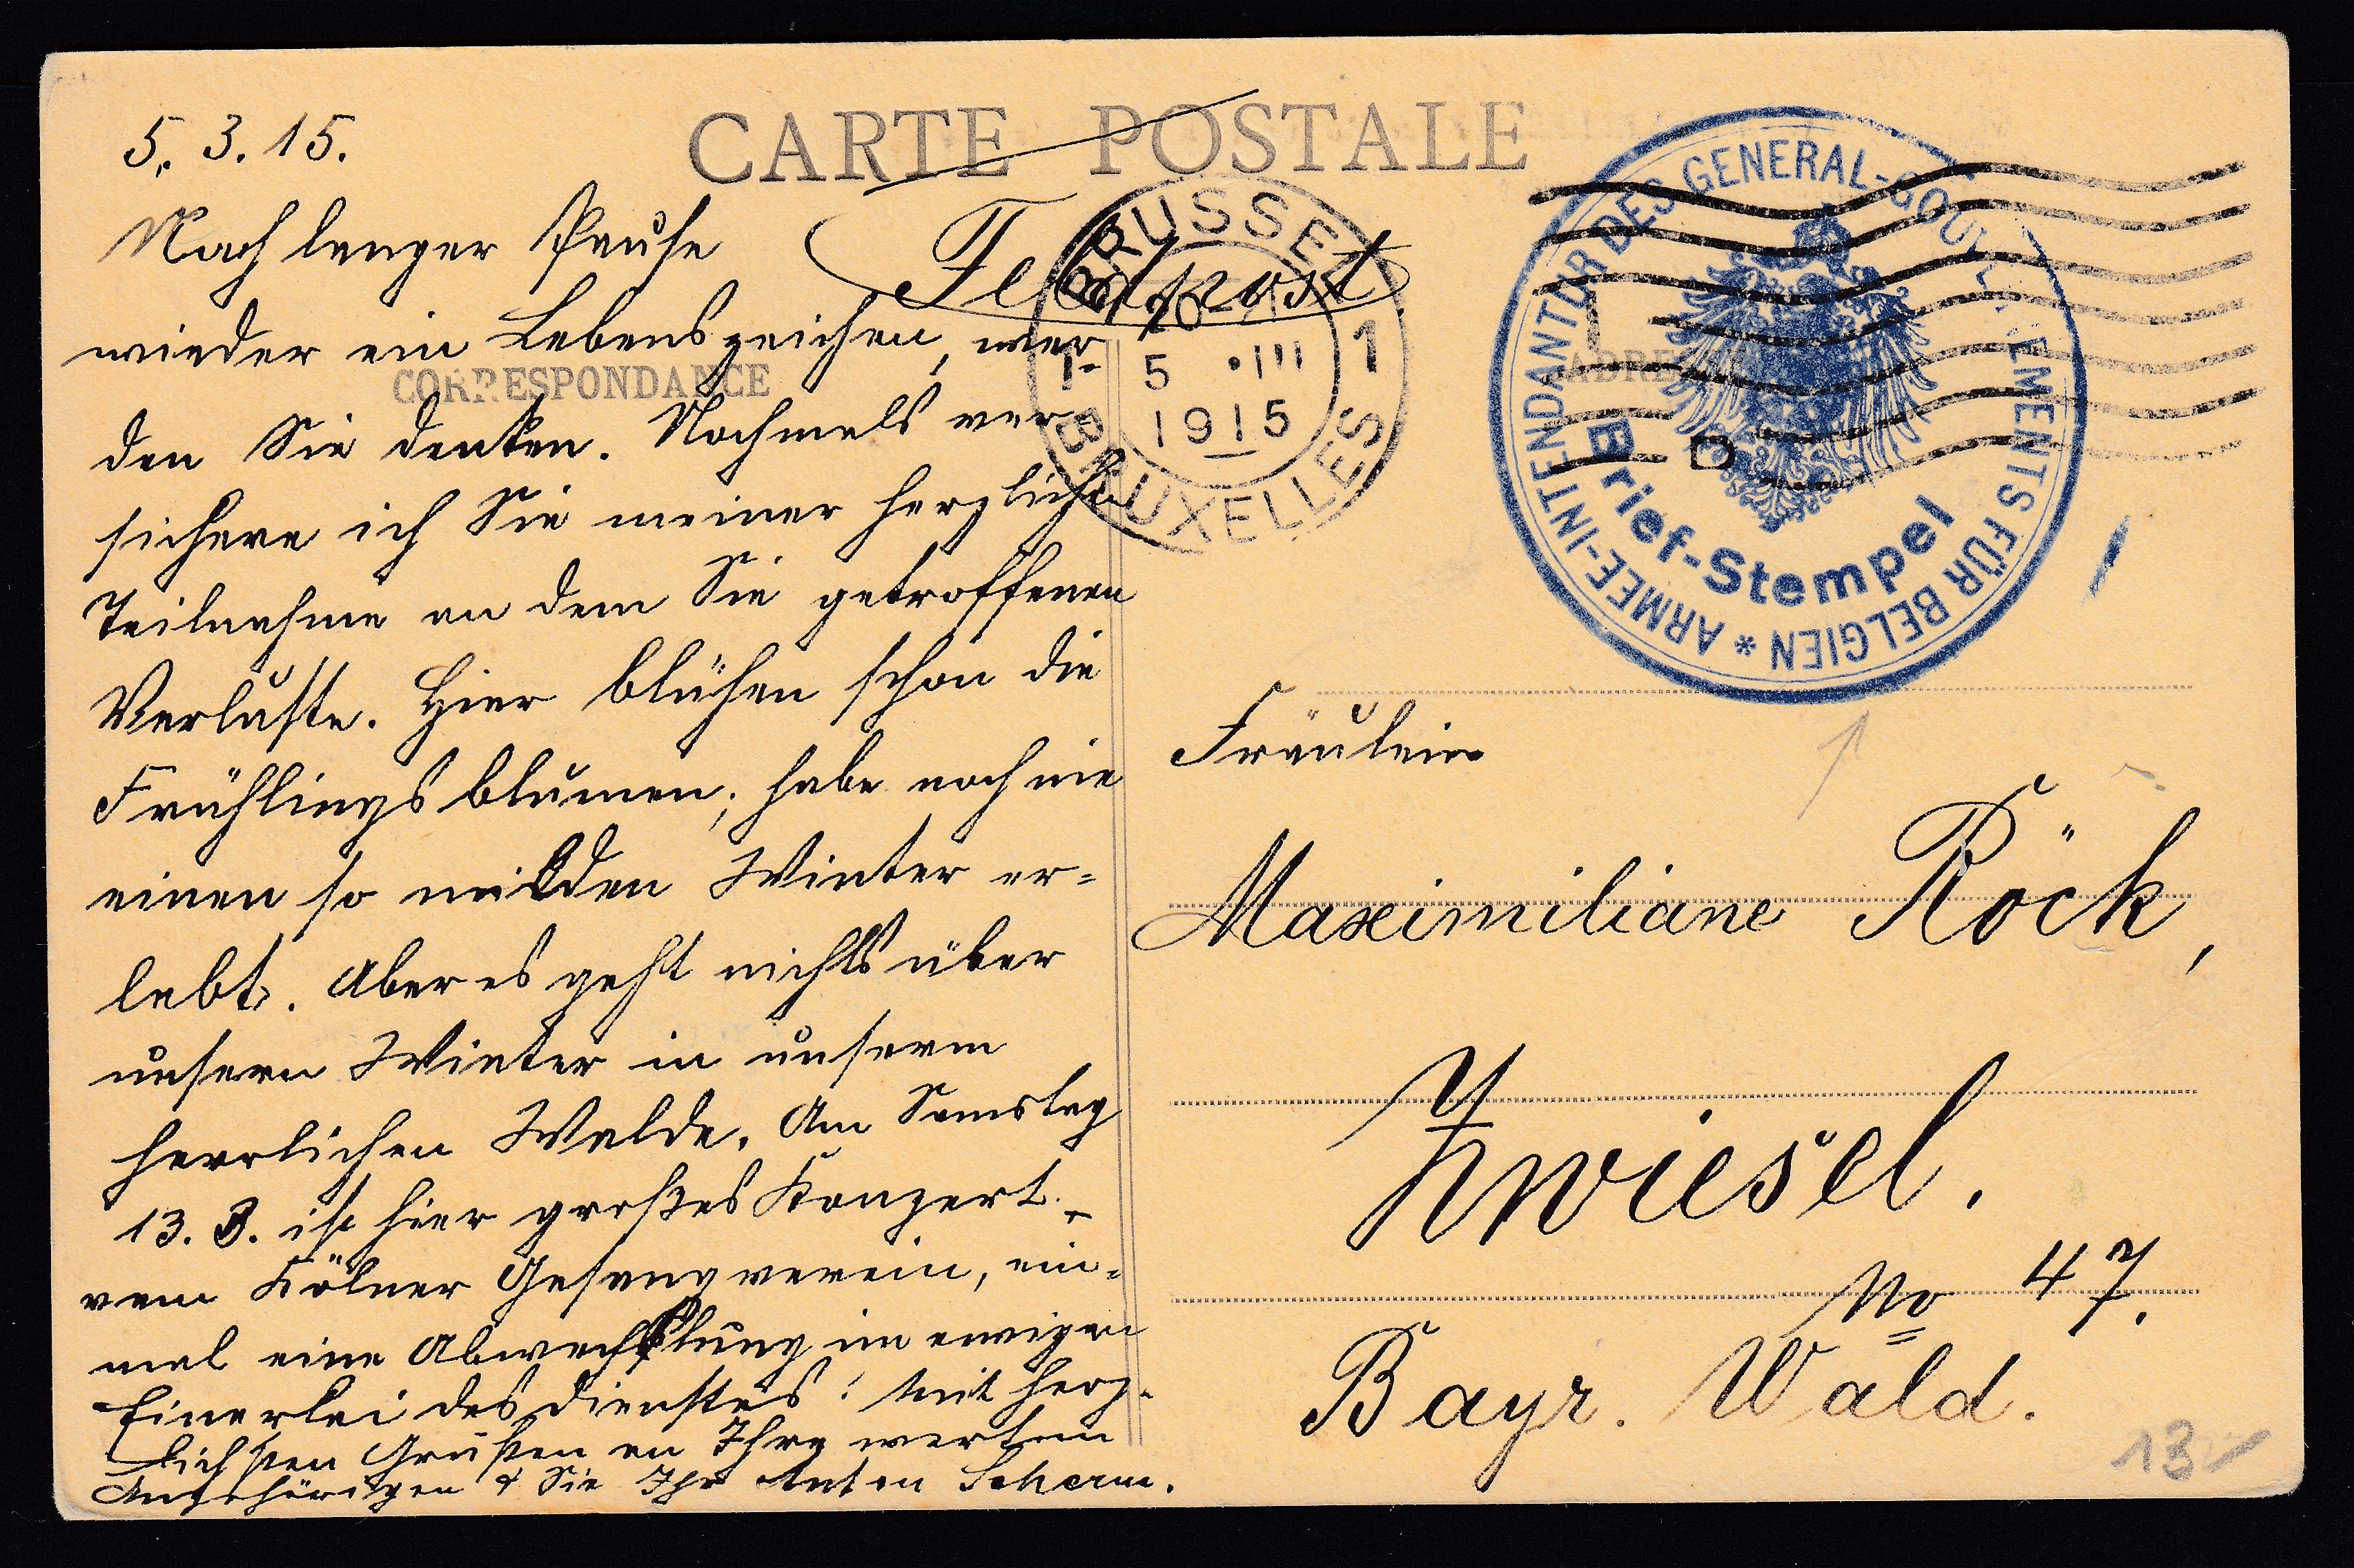 CARTE POSTALE
5. 3. 15.
Nach langer Pause
wieder ein Lebenszeichen, wer-
den Sie denken. Nochmals ver-
sichere ich Sie meiner herzlichen
Teilnahme an dem Sie getroffenen
Verluste. Hier blühen schon die
Frühlingsblumen; habe noch nie
einen so milden Winter er=
lebt. Aber es geht nichts über
unsern Winter in unserm
herrlichen Walde. Am Samstag
13. 3. ist hier großes Konzert
vom Kölner Gesangverein, ein=
mal eine Abwechslung im ewigen
Einerlei des Dienstes! Mit herz-
lichsten Grüßen an Ihre werten
Angehörigen & Sie Ihr Anton
CORRESPONDANCE
Feldpost
BRÜSSEL
1 5 •III 1
1915
BRUXELLES
ARMEE-INTENDANTUR DES GENERAL-GOUVERNEMENTS FÜR BELGIEN *
Brief-Stempel
Fräulein
Maximiliane Röck,
Zwiesel.
No 47.
Bayr. Wald.
13